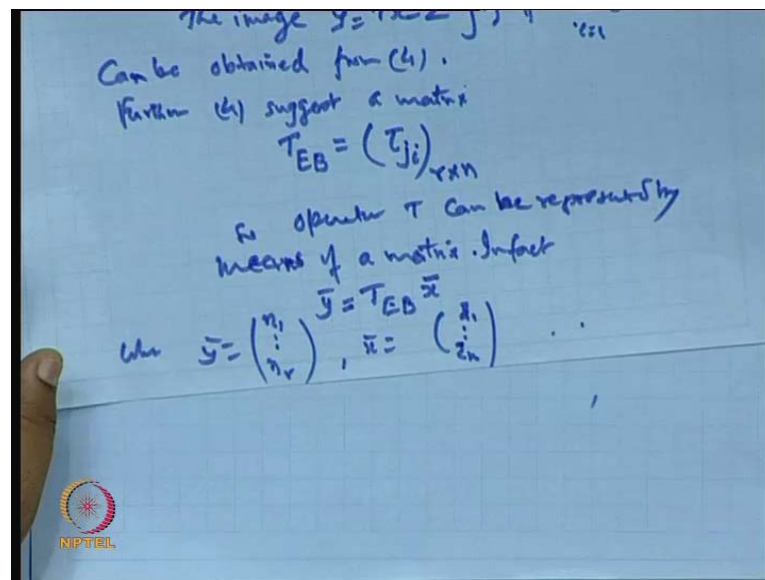 The image y = Tx = Σ
i=1
Can be obtained from (4).
Further (4) suggest a matrix
T_EB = (τ_ji)_r×n
So operator T can be represented by
means of a matrix. Infact
ȳ = T_EB x̄
Wher ȳ = (η1 ⋮ ηr), x̄ = (ξ1 ⋮ ξn)
NPTEL